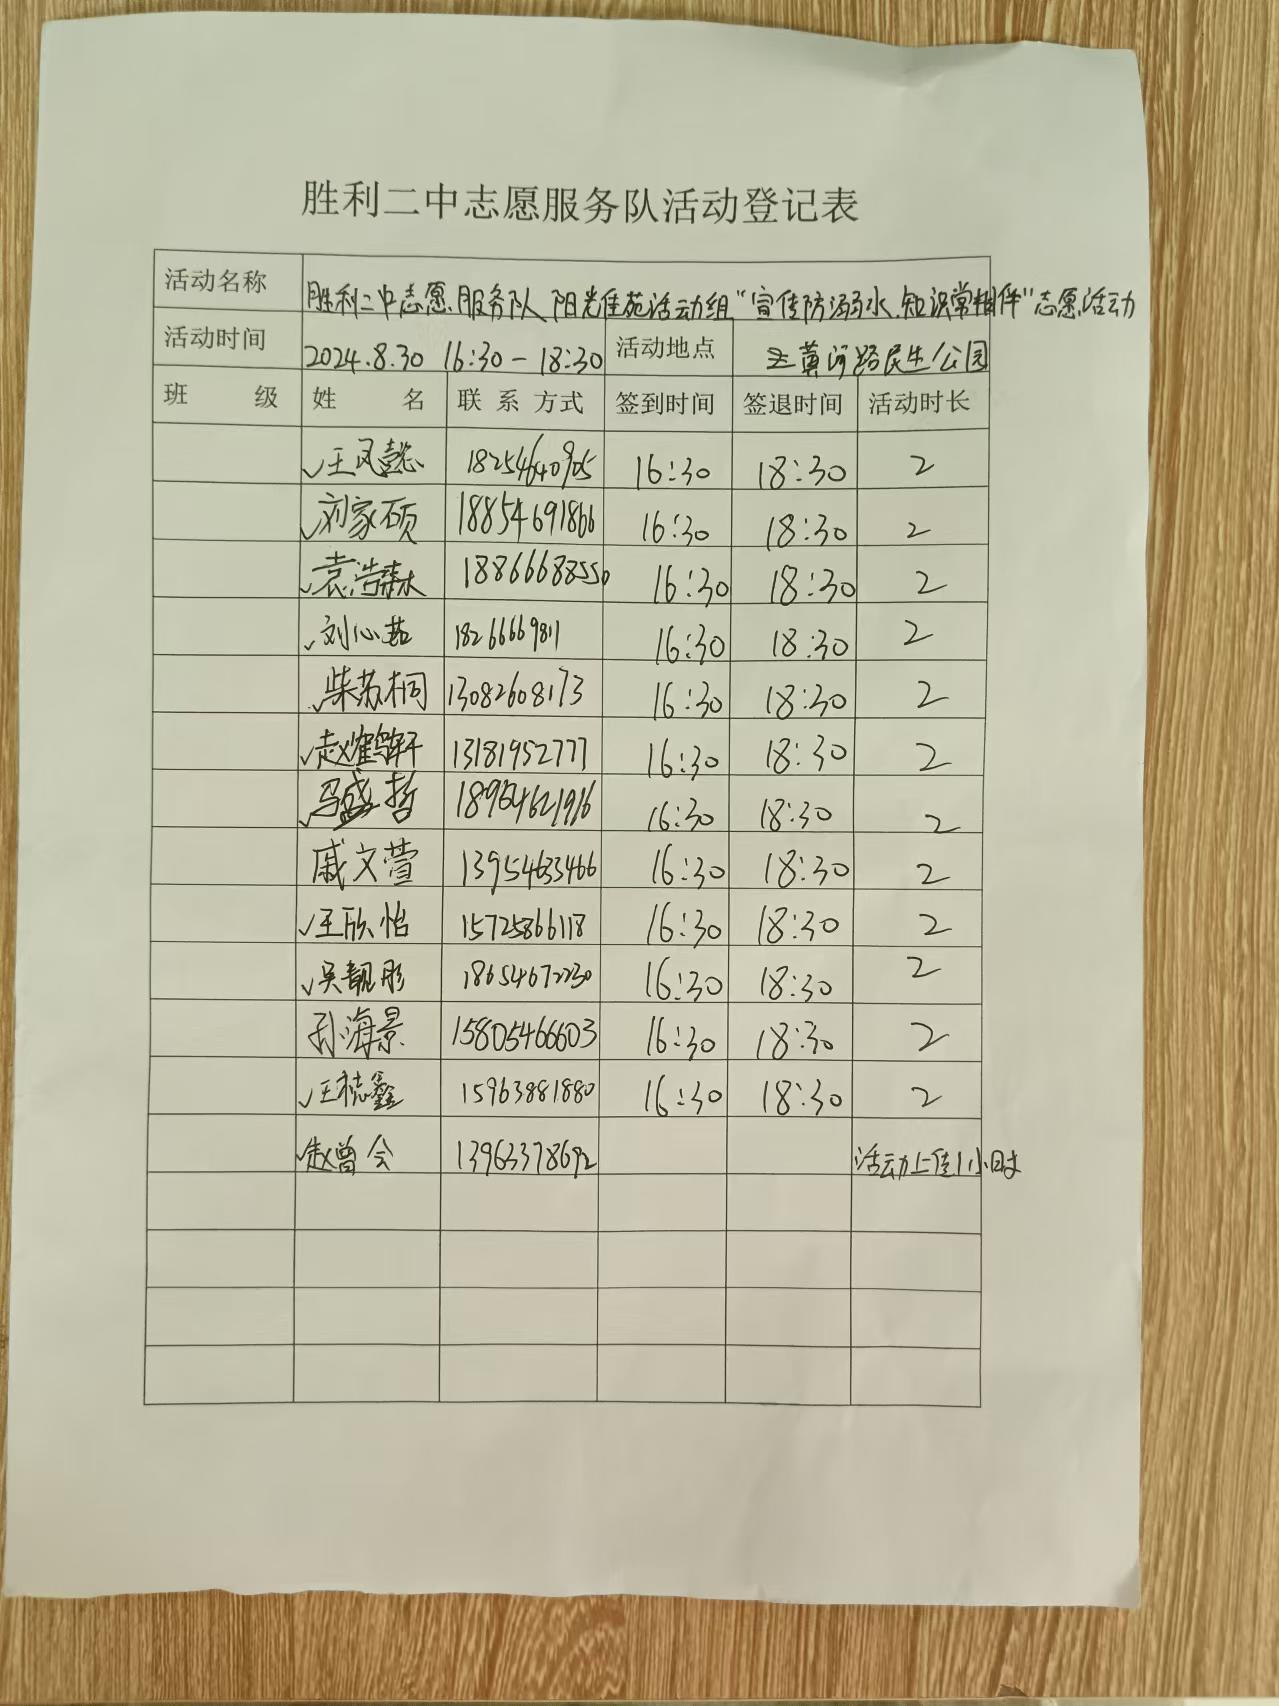 胜利二中志愿服务队活动登记表
活动名称 胜利二中志愿服务队阳光佳苑活动组“宣传防溺水,知识常相伴”志愿活动
活动时间 2024.8.30 16:30-18:30 活动地点 黄河路民生公园
班 级 姓 名 联系方式 签到时间 签退时间 活动时长
✓王凤懿 18254640905 16:30 18:30 2
✓刘家硕 18854691866 16:30 18:30 2
✓袁浩森 18866688550 16:30 18:30 2
✓刘心茹 18266669811 16:30 18:30 2
✓柴苏桐 13082608173 16:30 18:30 2
✓赵鹤轩 13181952777 16:30 18:30 2
✓冯盛哲 18954621916 16:30 18:30 2
戚文萱 13954633466 16:30 18:30 2
✓王欣怡 15725866118 16:30 18:30 2
✓吴靓彤 18654672230 16:30 18:30 2
孙海景 15805466603 16:30 18:30 2
✓王志鑫 15963881880 16:30 18:30 2
✓赵曾会 13963378692 活动上传1小时